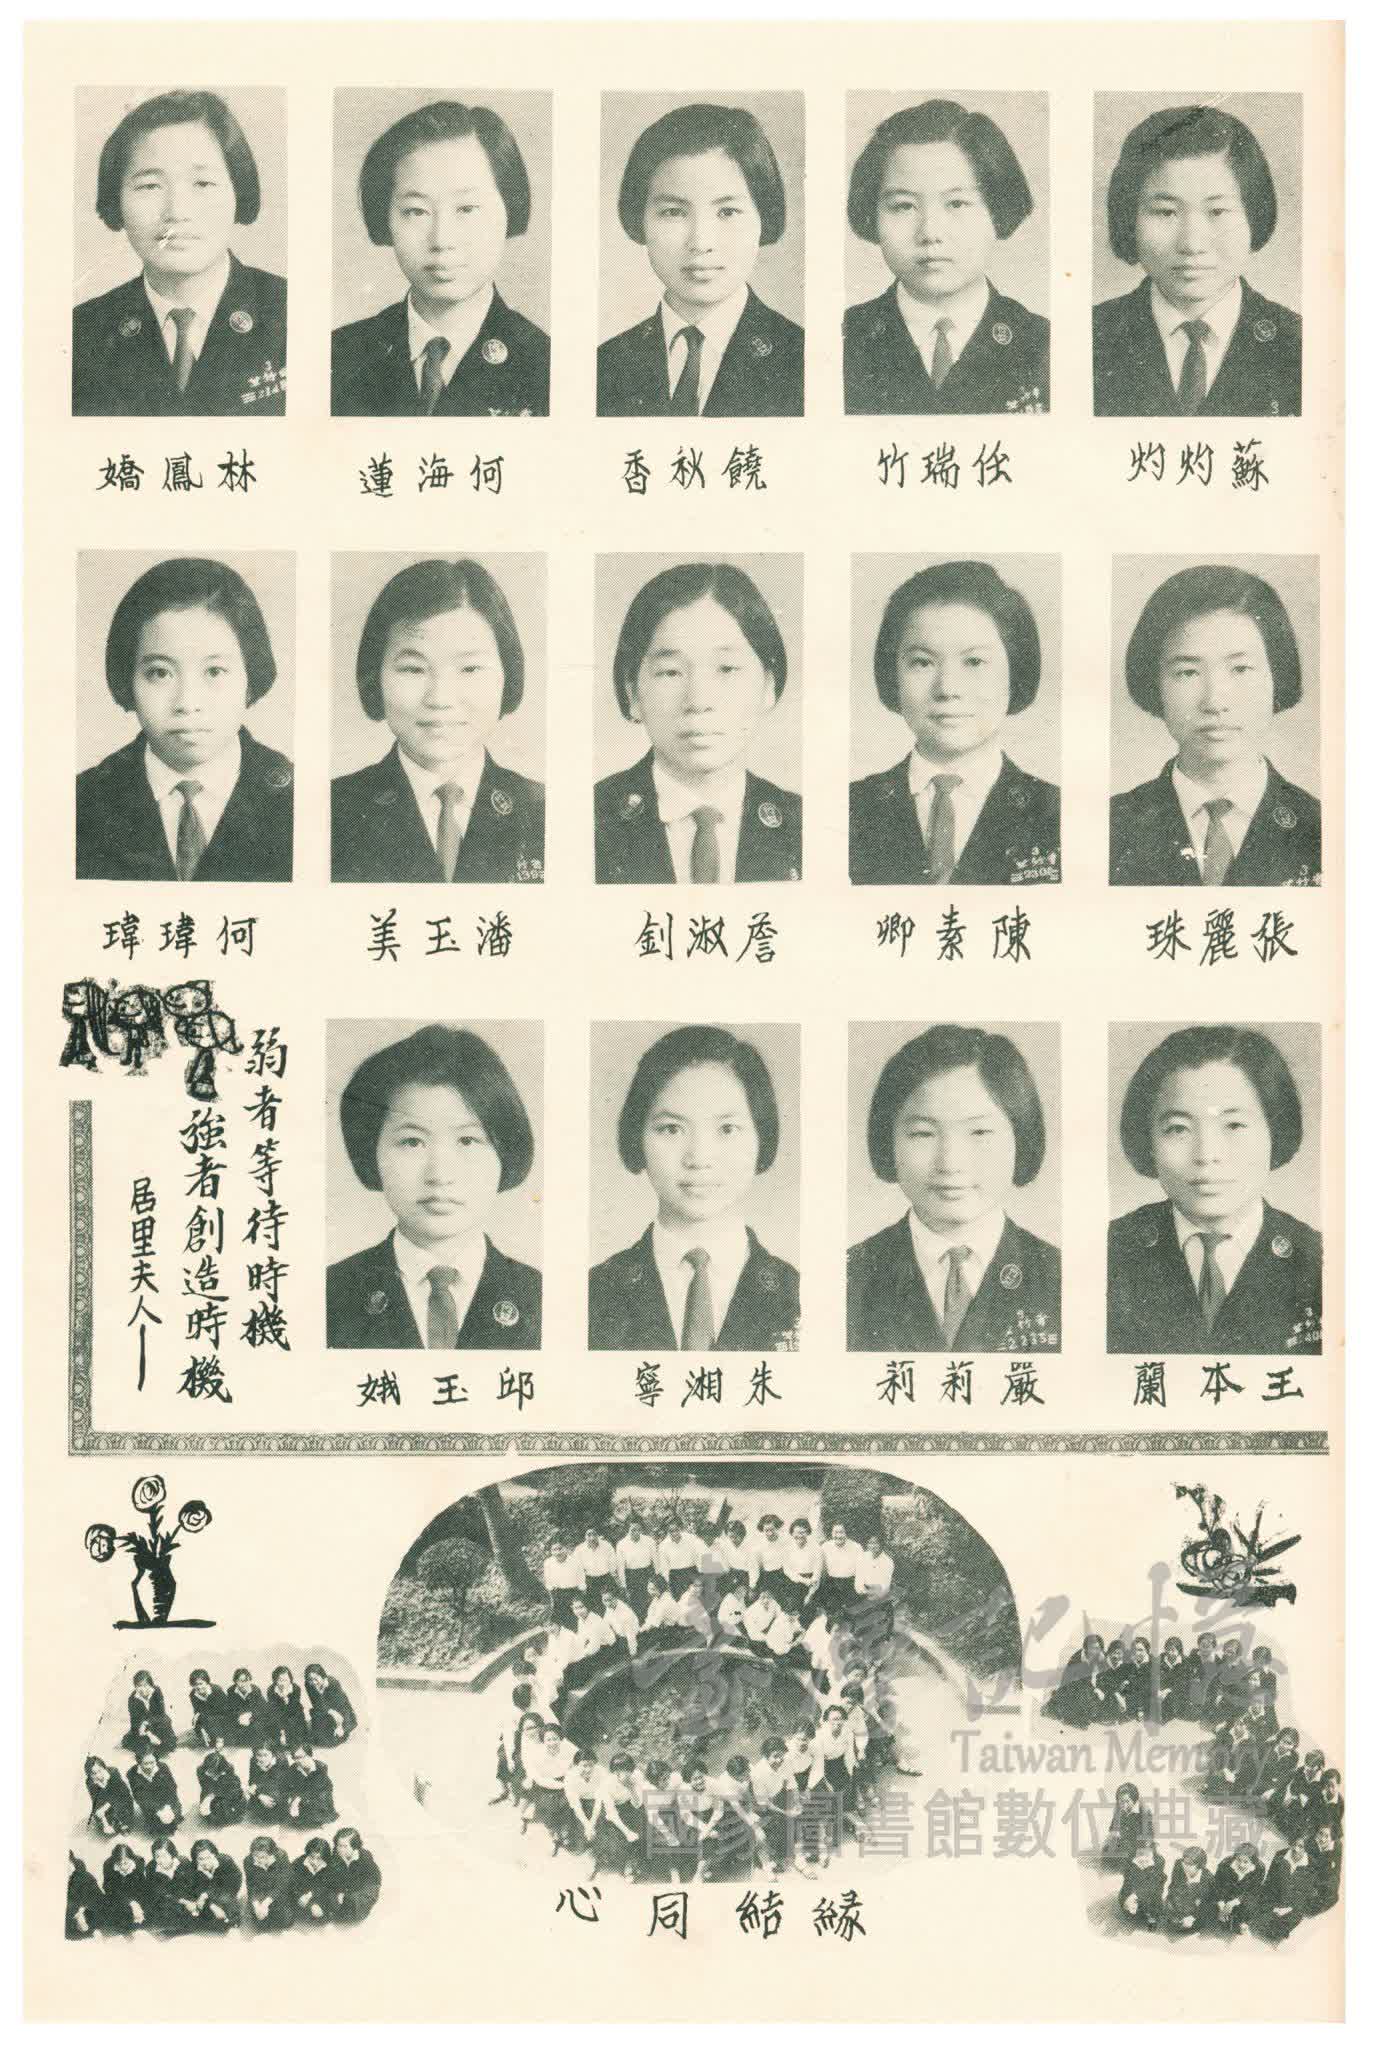 蘇灼灼
任瑞竹
饒秋香
何海蓮
林鳳嬌
張麗珠
陳素卿
詹淑釗
潘玉美
何瑋瑋
王本蘭
嚴莉莉
朱湘寧
邱玉娥
弱者等待時機
強者創造時機
居里夫人
緣結同心
臺灣記憶
Taiwan Memory
國家圖書館數位典藏